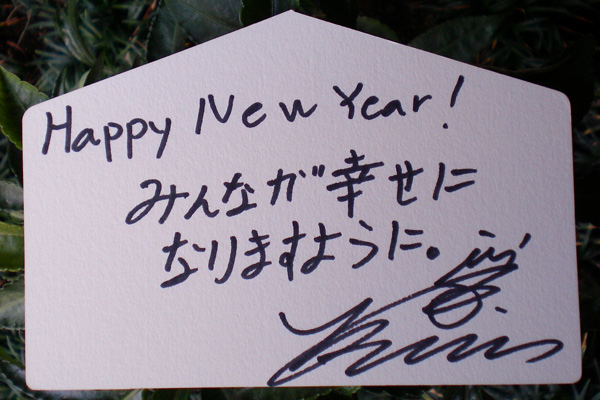 Happy New Year!
みんなが幸せに
なりますように。